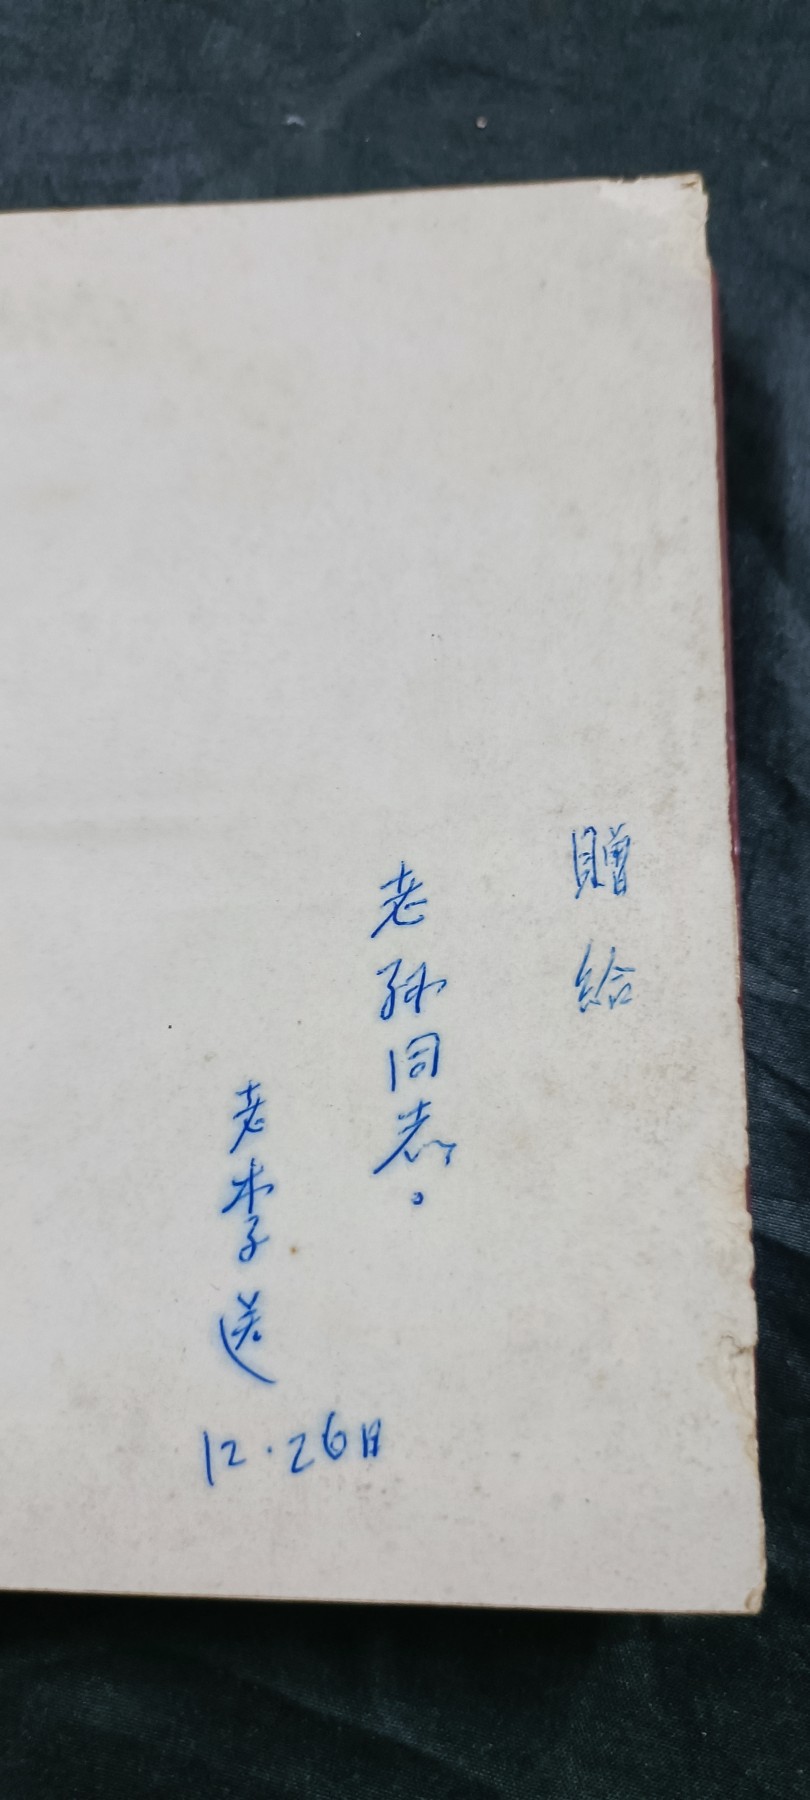 贈給
老孙同志。
老李送
12.26日